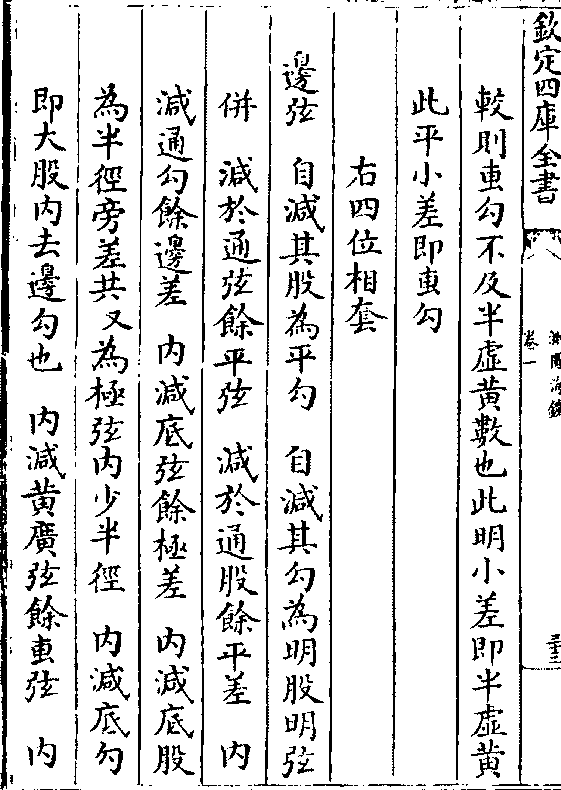 欽定四庫全書
測圓海鏡
卷一
三十三
較則叀勾不及半虛黃數也此明小差即半虛黃
此平小差即叀勾
右四位相套
邊弦　自減其股為平勾　自減其勾為明股明弦
併　減於通弦餘平弦　減於通股餘平差　內
減通勾餘邊差　內減底弦餘極差　內減底股
為半徑旁差共又為極弦內少半徑　內減底勾
即大股內去邊勾也　內減黃廣弦餘叀弦　內